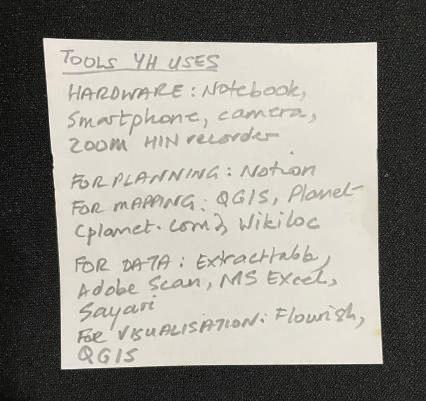 TOOLS YH USES
HARDWARE: Notebook,
Smartphone, camera,
ZOOM H1N recorder
FOR PLANNING: Notion
FOR MAPPING: QGIS, Planet
(planet.com), Wikiloc
FOR DATA: Extracttable,
Adobe Scan, MS Excel,
Sayari
FOR VISUALISATION: Flourish,
QGIS